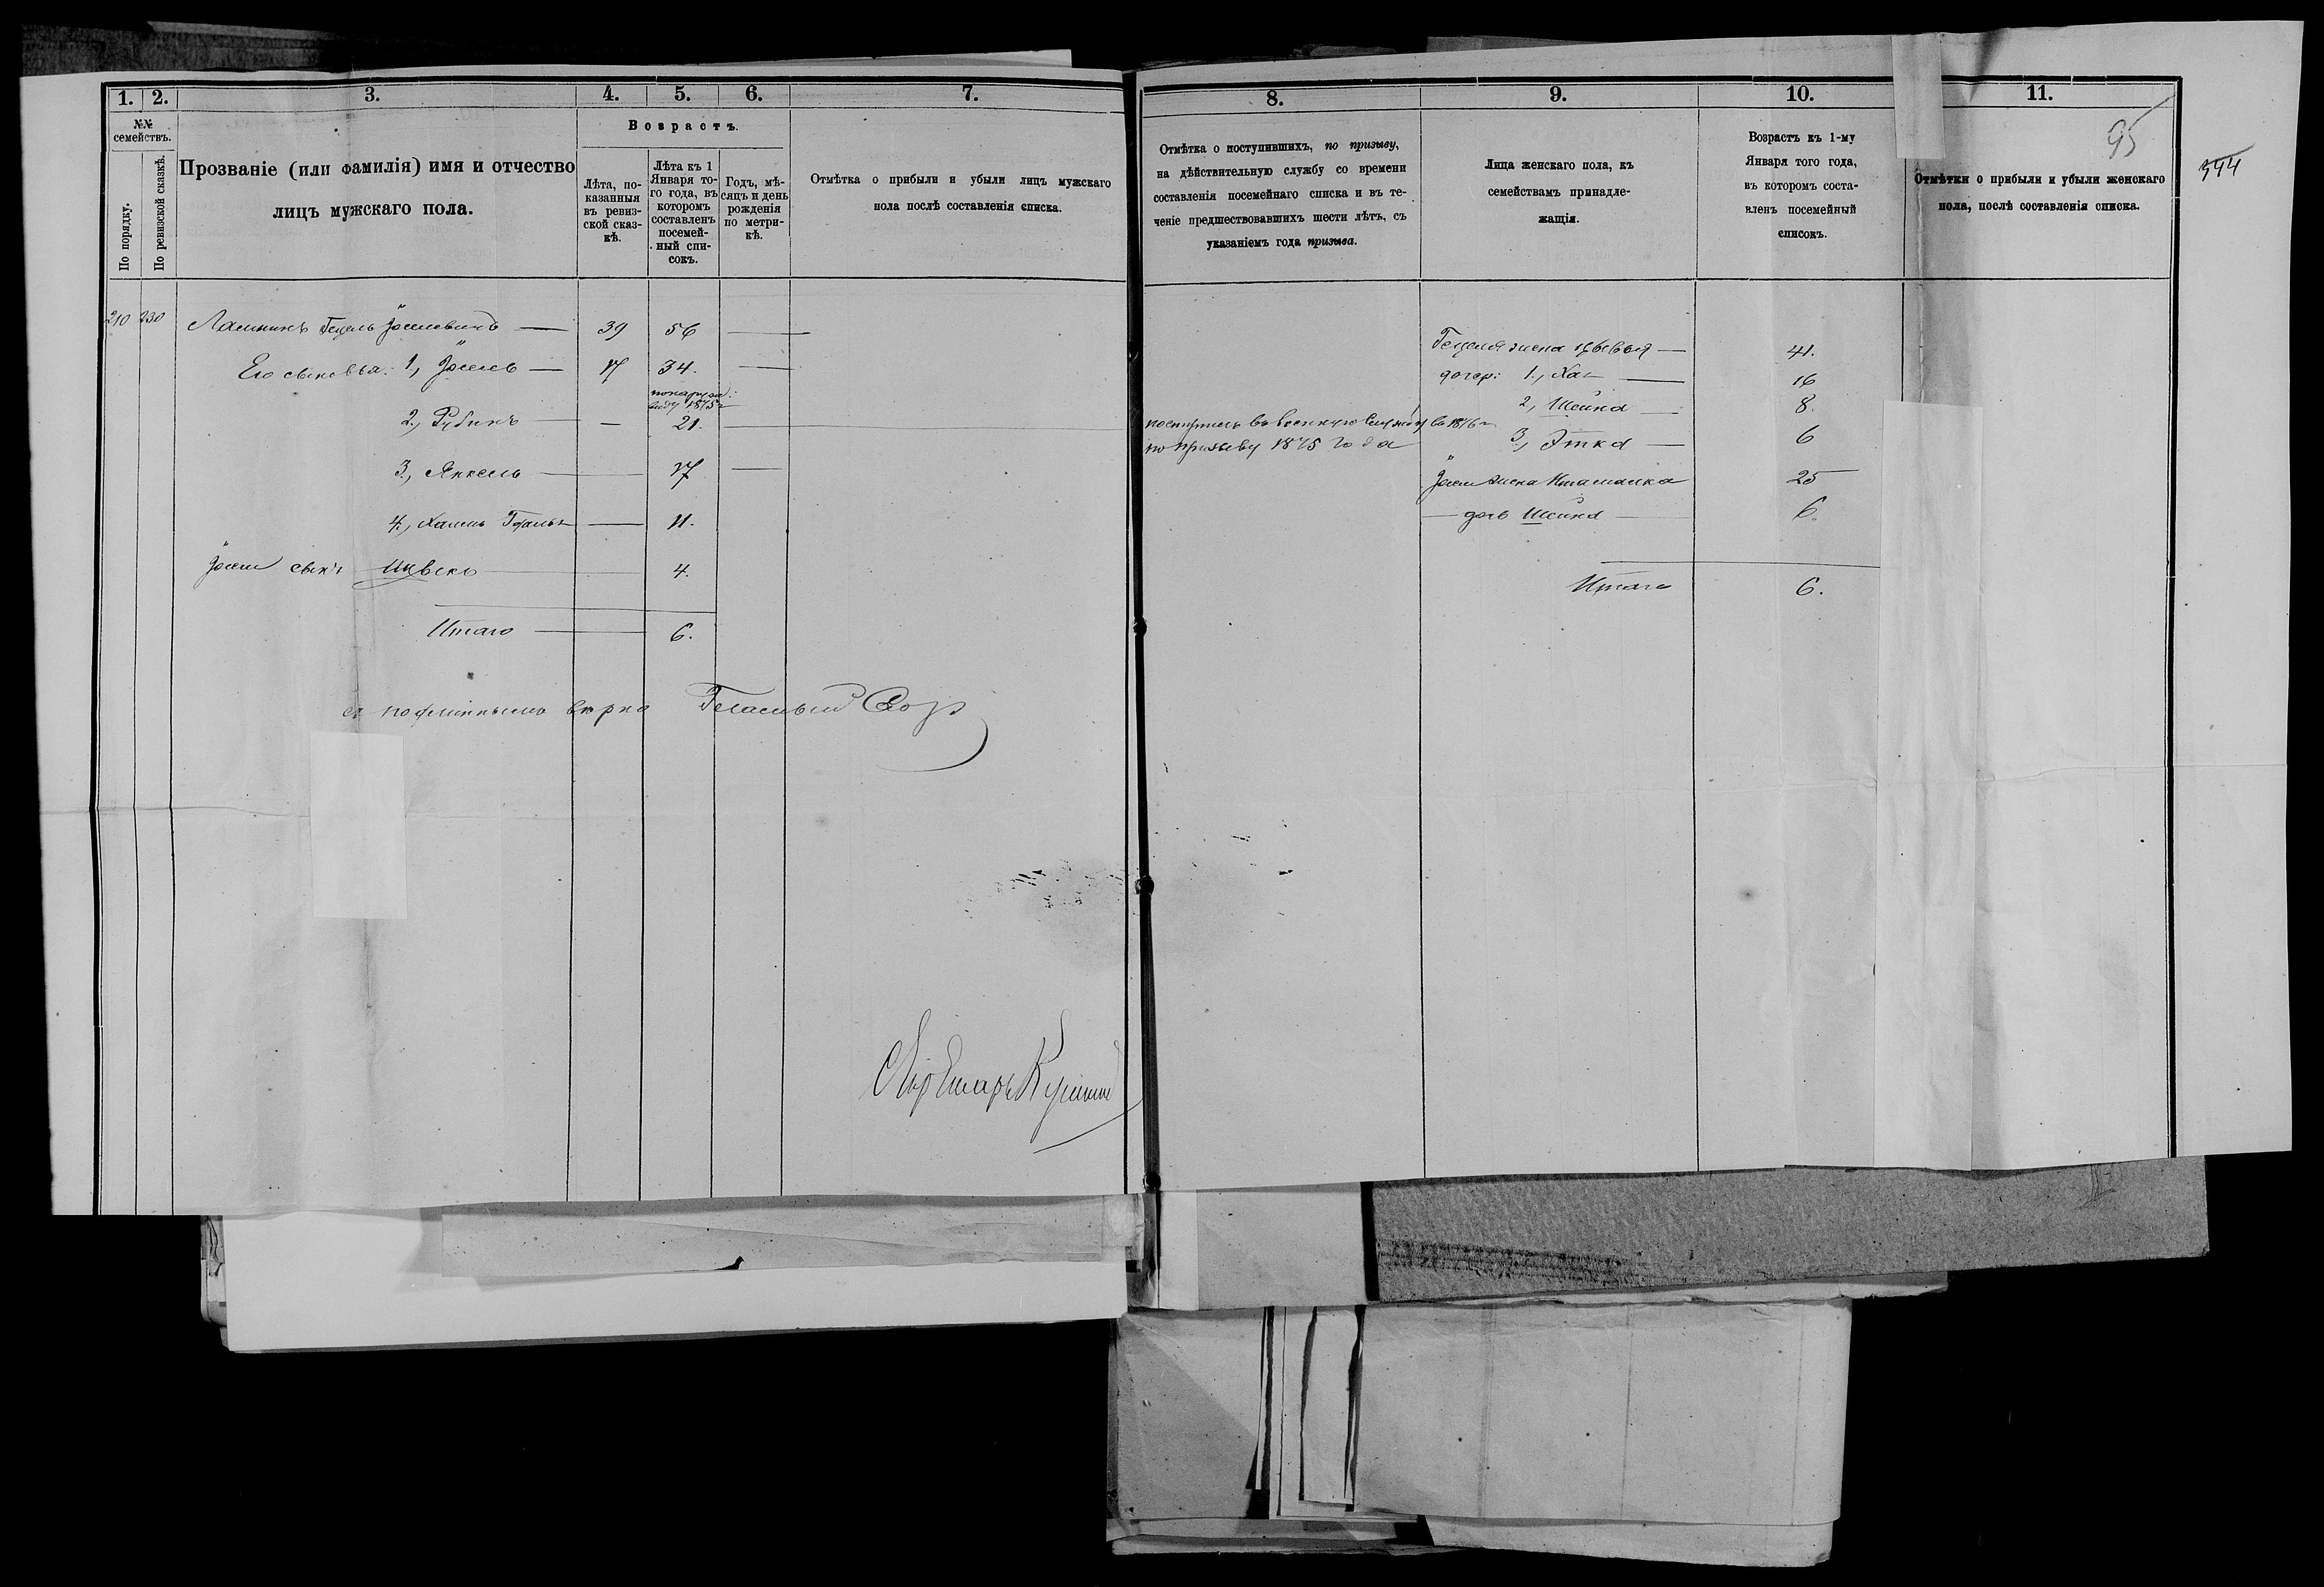 1. 2. 3. 4. 5. 6. 7.
№№ семействъ.
По порядку.
По ревизской сказкѣ.
Прозваніе (или фамилія) имя и отчество
лицъ мужскаго пола.
Возрастъ.
Лѣта, по-
казанныя
въ ревиз-
ской сказ-
кѣ.
Лѣта къ 1
Января то-
го года, въ
которомъ
составленъ
посемей-
ный спи-
сокъ.
Годъ, мѣ-
сяцъ и день
рожденія
по метри-
кѣ.
Отмѣтка о прибыли и убыли лицъ мужскаго
пола послѣ составленія списка.
210 230 Гецель 39 56
Его сыновья: 1, 17 34.
1875
2, Рубинъ — 21.
3, Янкель 17
4, 11.
сынъ 4.
Итого 6.
съ подлиннымъ вѣрно Гласный
8. 9. 10. 11.
Отмѣтка о поступившихъ, по призыву,
на дѣйствительную службу со времени
составленія посемейнаго списка и въ те-
ченіе предшествовавшихъ шести лѣтъ, съ
указаніемъ года призыва.
Лица женскаго пола, къ
семействамъ принадле-
жащія.
Возрастъ къ 1-му
Января того года,
въ которомъ соста-
вленъ посемейный
списокъ.
Отмѣтки о прибыли и убыли женскаго
пола, послѣ составленія списка.
95
394
Гецеля жена 41.
дочер: 1, Хая 16
2, Шейна 8.
поступилъ въ военную службу въ 1876 г
по призыву 1875 года
3, Этка 6
жена 25
дочь Шейна 6.
Итого 6.